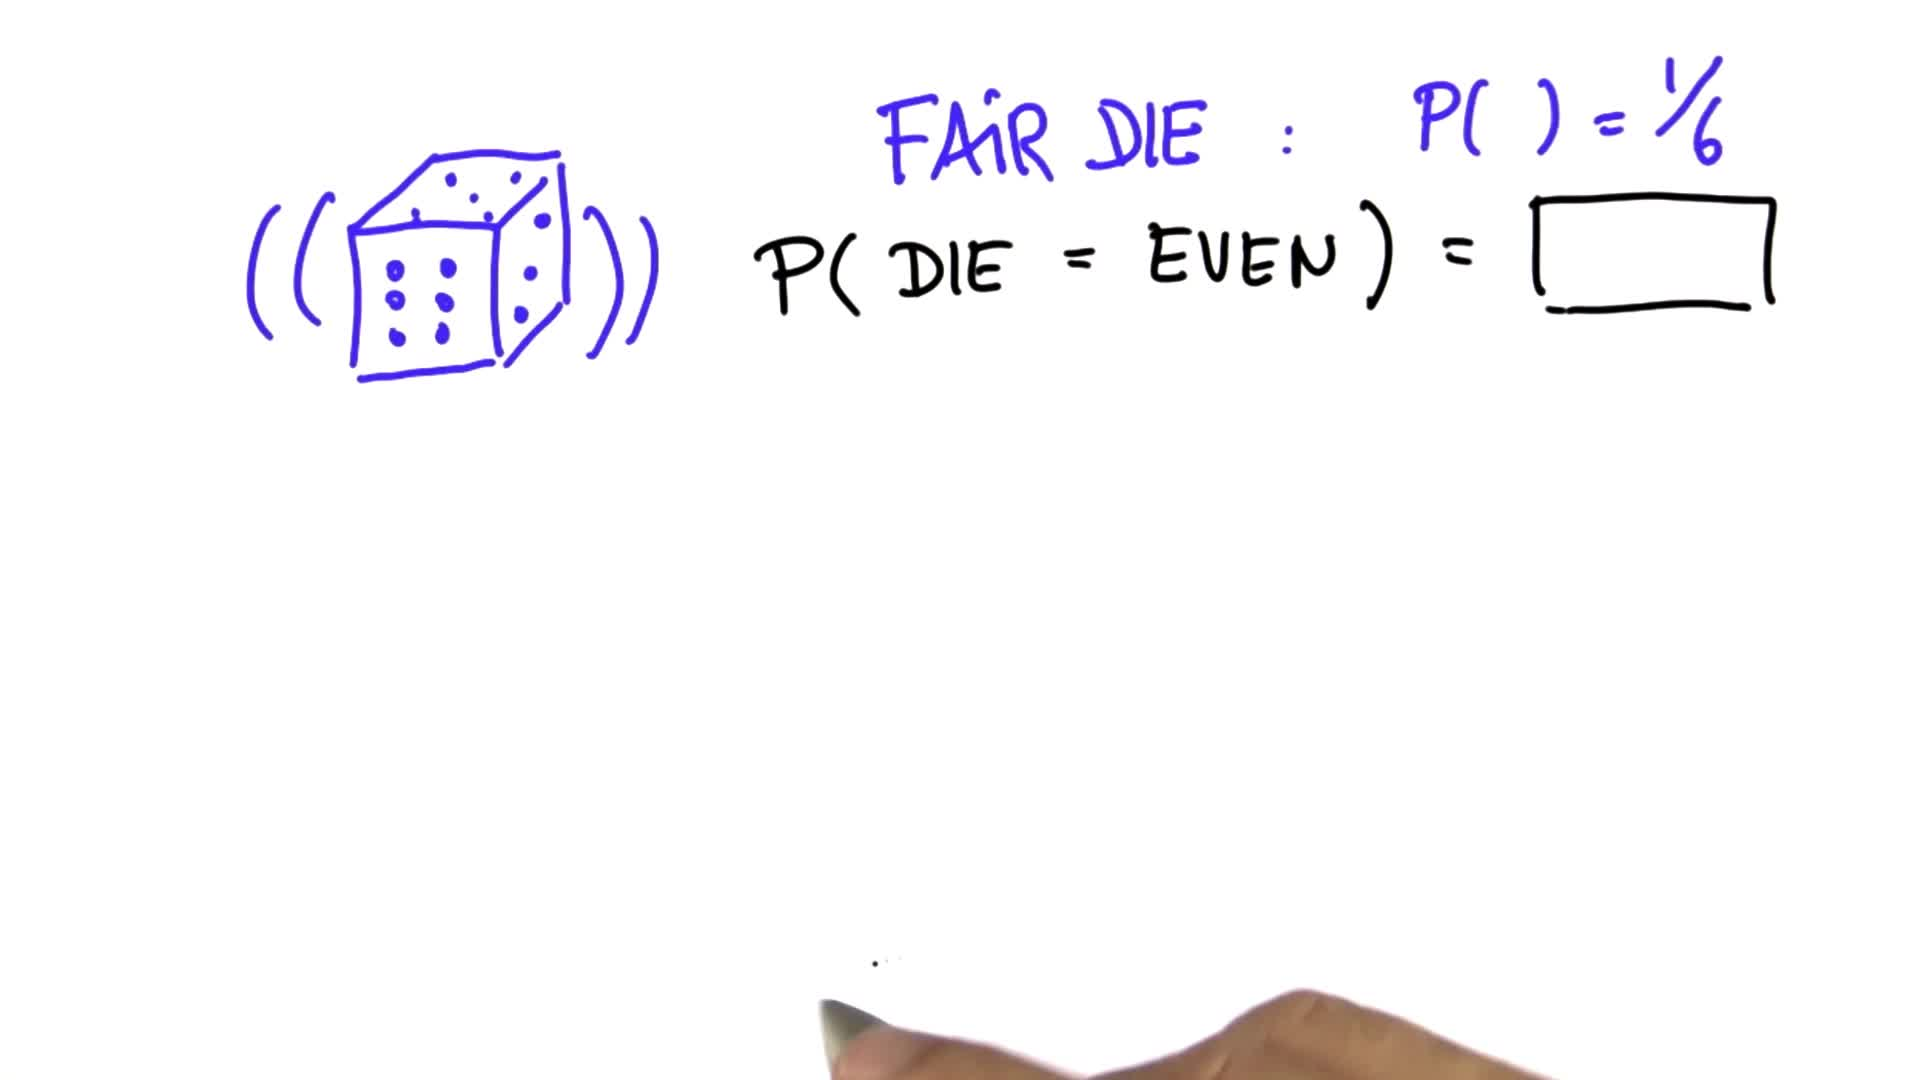 FAIR DIE : P( ) = 1/6
P( DIE = EVEN ) =